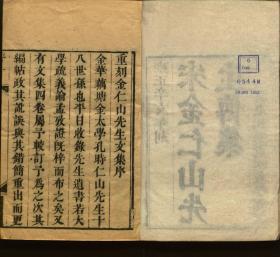 重刻金仁山先生文集序
金華藕塘金太學孔時仁山先生十
八世孫也平日收錄先生遺書若大
學疏義論孟攷證既梓而布之矣又
有文集四卷屬予較訂予為之次其
編帖政其訛誤與其錯簡重出而更
宋金仁山先